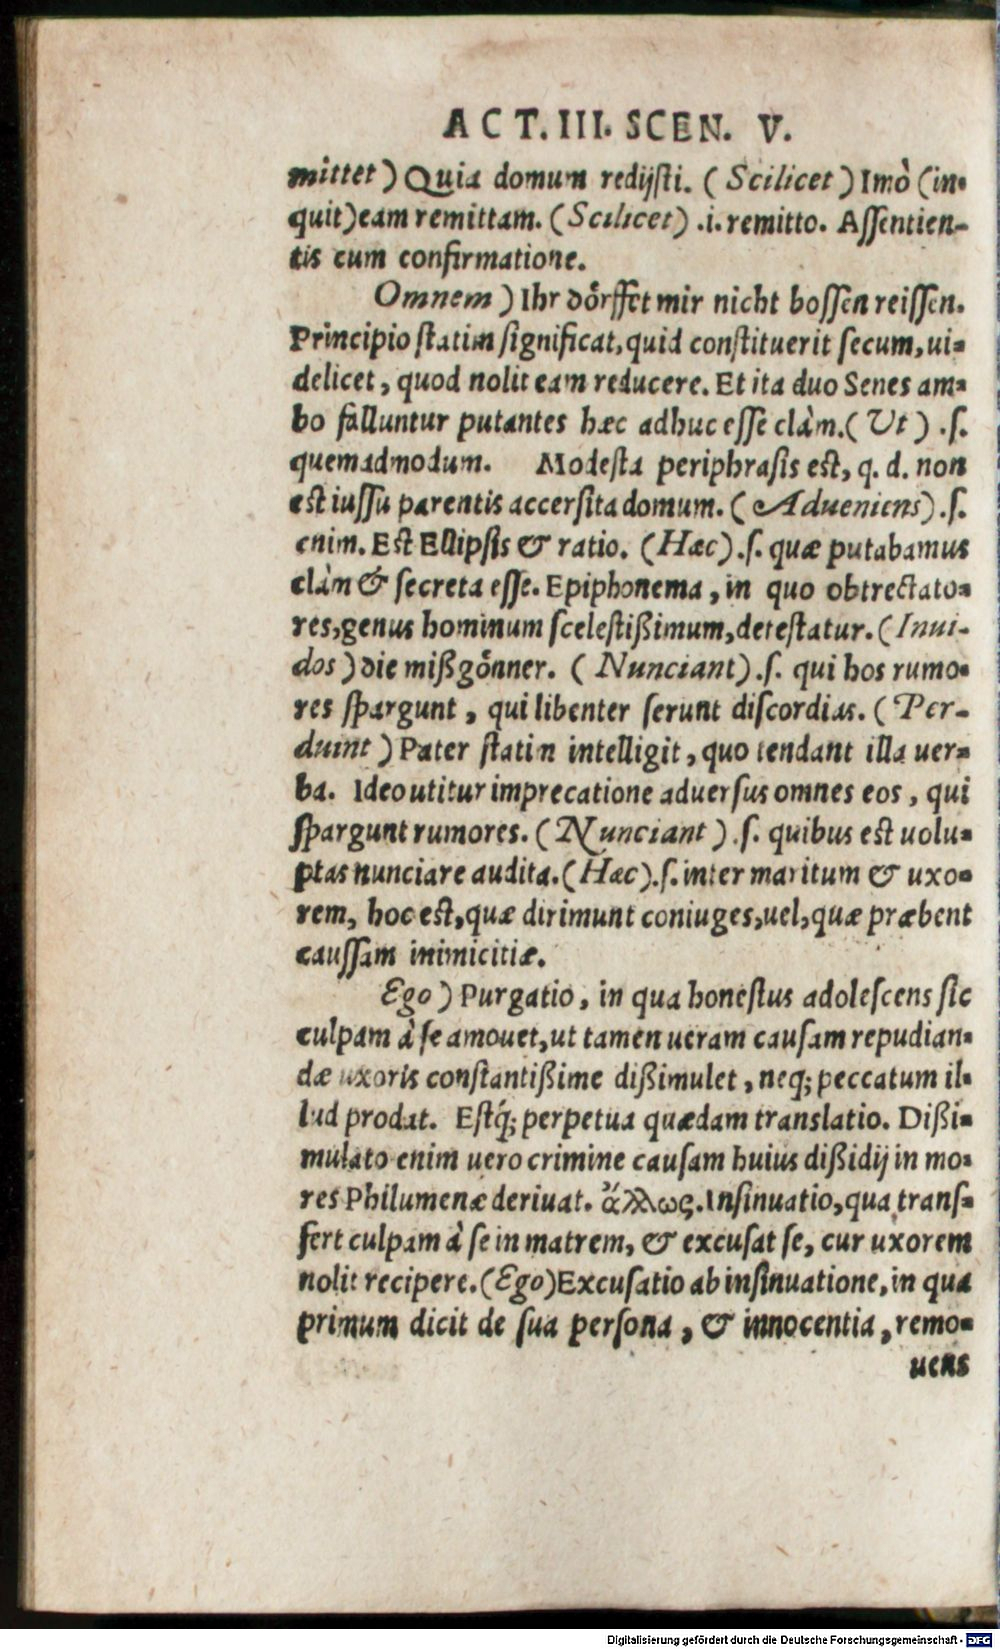 ACT. III. SCEN. V.
mittet) Quia domum redijsti. (Scilicet) Imò (in-
quit) eam remittam. (Scilicet) .i. remitto. Assentien-
tis cum confirmatione.
Omnem) Ihr dörffet mir nicht bossen reissen.
Principio statim significat, quid constituerit secum, ui-
delicet, quod nolit eam reducere. Et ita duo Senes am-
bo falluntur putantes hæc adhuc esse clàm. (Ut) .s.
quemadmodum. Modesta periphrasis est, q. d. non
est iussu parentis accersita domum. (Adueniens) .s.
enim. Est Ellipsis & ratio. (Hæc) .s. quæ putabamus
clàm & secreta esse. Epiphonema, in quo obtrectato-
res, genus hominum scelestißimum, detestatur. (Inui-
dos) die mißgönner. (Nunciant) .s. qui hos rumo-
res spargunt, qui libenter serunt discordias. (Per-
duint) Pater statim intelligit, quo tendant illa uer-
ba. Ideo utitur imprecatione aduersus omnes eos, qui
spargunt rumores. (Nunciant) .s. quibus est uolu-
ptas nunciare audita. (Hæc) .s. inter maritum & uxo-
rem, hoc est, quæ dirimunt coniuges, uel, quæ præbent
caussam inimicitiæ.
Ego) Purgatio, in qua honestus adolescens sic
culpam à se amouet, ut tamen ueram causam repudian-
dæ uxoris constantißime dißimulet, neq; peccatum il-
lud prodat. Estq́; perpetua quædam translatio. Dißi-
mulato enim uero crimine causam huius dißidij in mo-
res Philumenæ deriuat. ἄλλως. Insinuatio, qua trans-
fert culpam à se in matrem, & excusat se, cur uxorem
nolit recipere. (Ego) Excusatio ab insinuatione, in qua
primum dicit de sua persona, & innocentia, remo-
uens
Digitalisierung gefördert durch die Deutsche Forschungsgemeinschaft - DFG